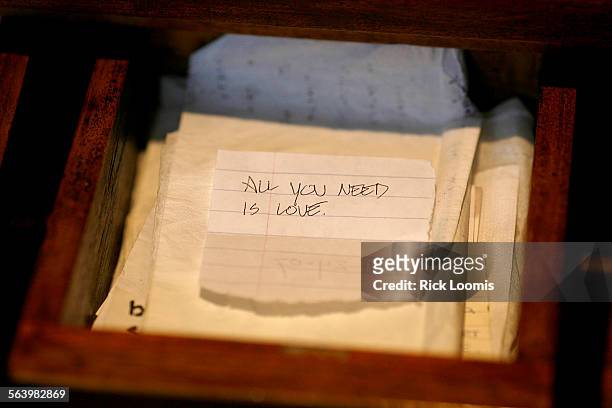 ALL YOU NEED
IS LOVE.
b
gettyimages
Credit: Rick Loomis
563982869